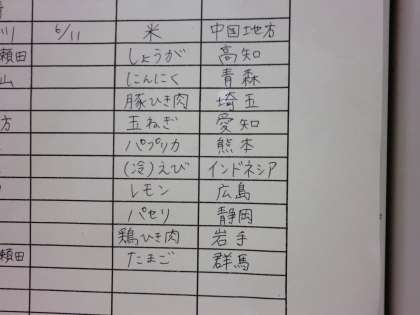 川 6/11 米 中国地方
瀬田 しょうが 高知
山 にんにく 青森
豚ひき肉 埼玉
方 玉ねぎ 愛知
パプリカ 熊本
(冷)えび インドネシア
レモン 広島
パセリ 静岡
鶏ひき肉 岩手
瀬田 たまご 群馬